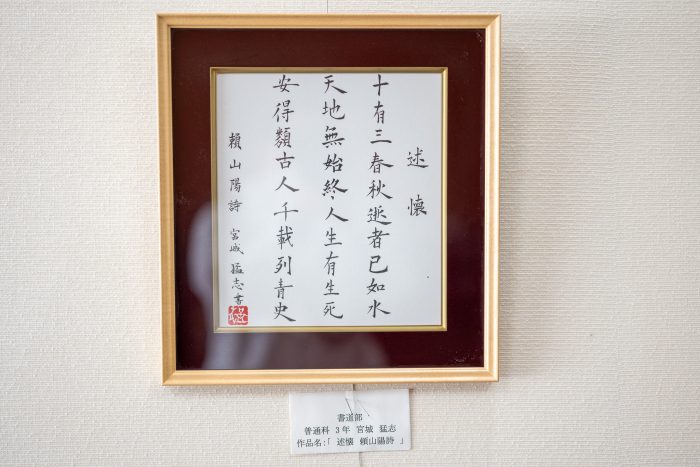 述懐
十有三春秋逝者已如水
天地無始終人生有生死
安得類古人千載列青史
頼山陽詩 宮城猛志書
書道部
普通科 3年 宮城 猛志
作品名:「 述懐 頼山陽詩 」